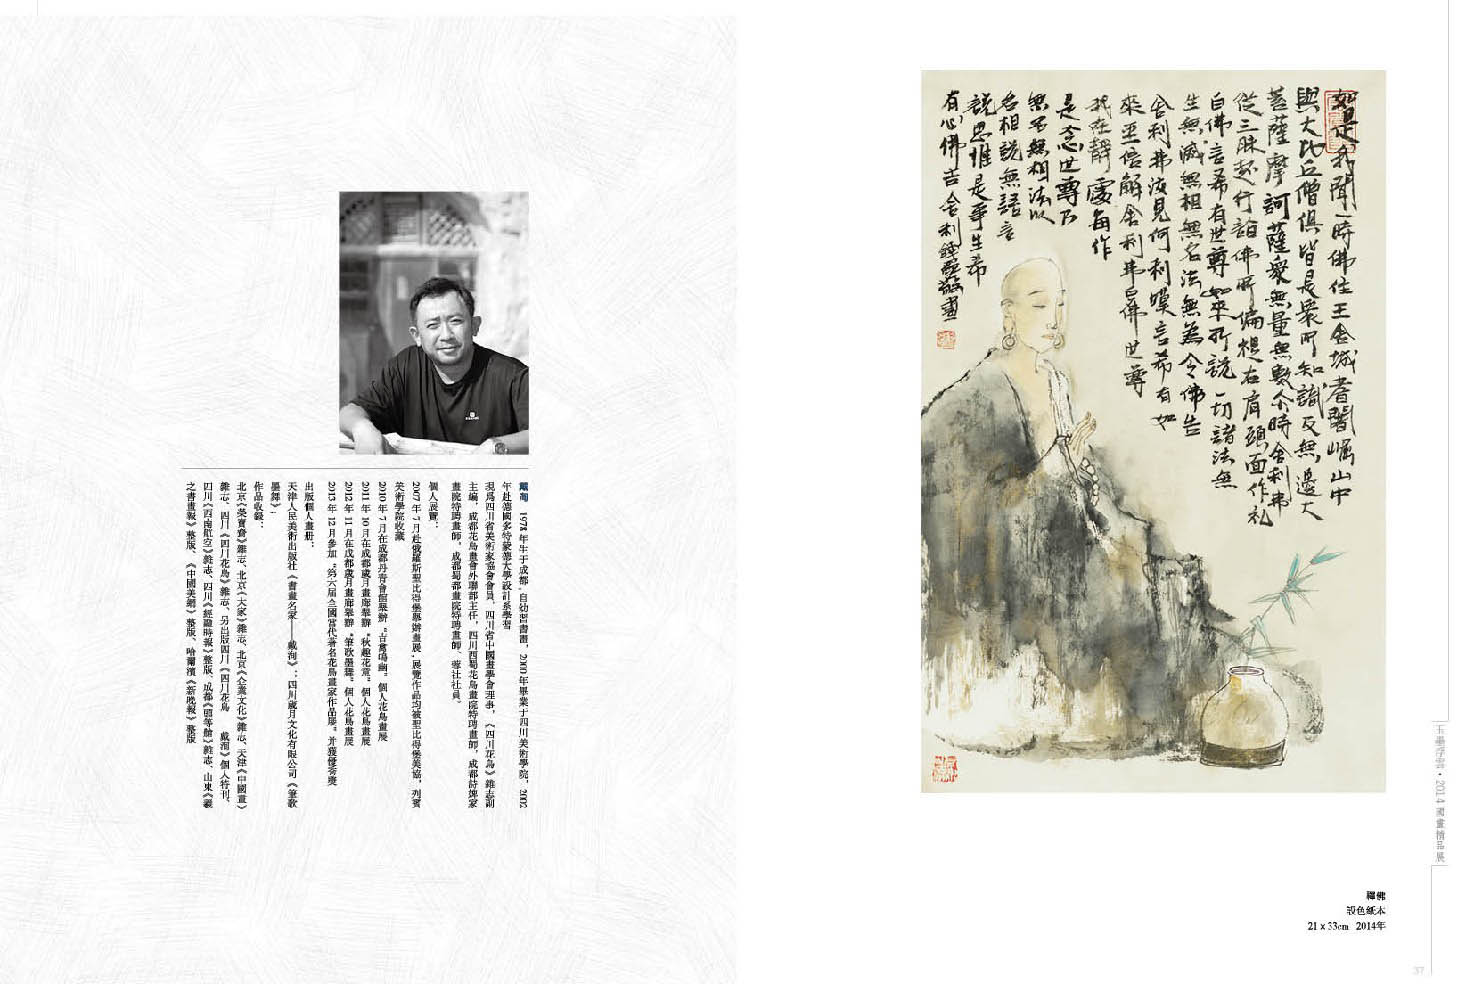 戴洵 1978年生于成都，自幼習書畫，2000年畢業于四川美術學院，2002
年赴德國多特蒙德大學設計系學習
現爲四川省美術家協會會員、四川省中國畫學會理事，《四川花鳥》雜志副
主編，成都花鳥畫會外聯部主任，四川西蜀花鳥畫院特聘畫師，成都詩婢家
畫院特聘畫師，成都蜀都畫院特聘畫師、蓉社社員。
個人展覽：
2007年7月赴俄羅斯聖比得堡舉辦畫展，展覽作品均被聖比得堡美協，列賓
美術學院收藏
2010年7月在成都丹青會館舉辦“古禽鳴幽”個人花鳥畫展
2011年10月在成都歲月畫廊舉辦“秋趣花意”個人花鳥畫展
2012年11月在成都歲月畫廊舉辦“筆歌墨舞”個人花鳥畫展
2013年12月參加“第六届全國當代著名花鳥畫家作品展”并獲優秀獎
出版個人畫册：
天津人民美術出版社《書畫名家——戴洵》；四川歲月文化有限公司《筆歌
墨舞》；
作品收録：
北京《榮寶齋》雜志、北京《大家》雜志、北京《企業文化》雜志、天津《中國畫》
雜志、四川《四川花鳥》雜志、另出版四川《四川花鳥 戴洵》個人特刊、
四川《西南航空》雜志、四川《經融時報》整版、成都《頭等艙》雜志、山東《羲
之書畫報》整版、《中國美網》整版、哈爾濱《新晚報》整版
如是我聞一時佛住王舍城耆闍崛山中
與大比丘僧俱皆是衆所知識及無邊大
菩薩摩訶薩衆無量無數尒時舍利弗
從三昧起行詣佛所偏袒右肩頭面作礼
白佛言希有世尊如來所説一切諸法無
生無滅無相無名法無為令佛告
舍利弗汝見何利嘆言希有如
來至信解舍利弗白佛世尊
我在靜處每作
是念世尊乃
無名無相法以
名相説無語言
説思惟是事生希
有心佛告舍利
敬畫
玉墨浮雲·2014國畫精品展
禪佛
設色紙本
21 x 33cm 2014年
37